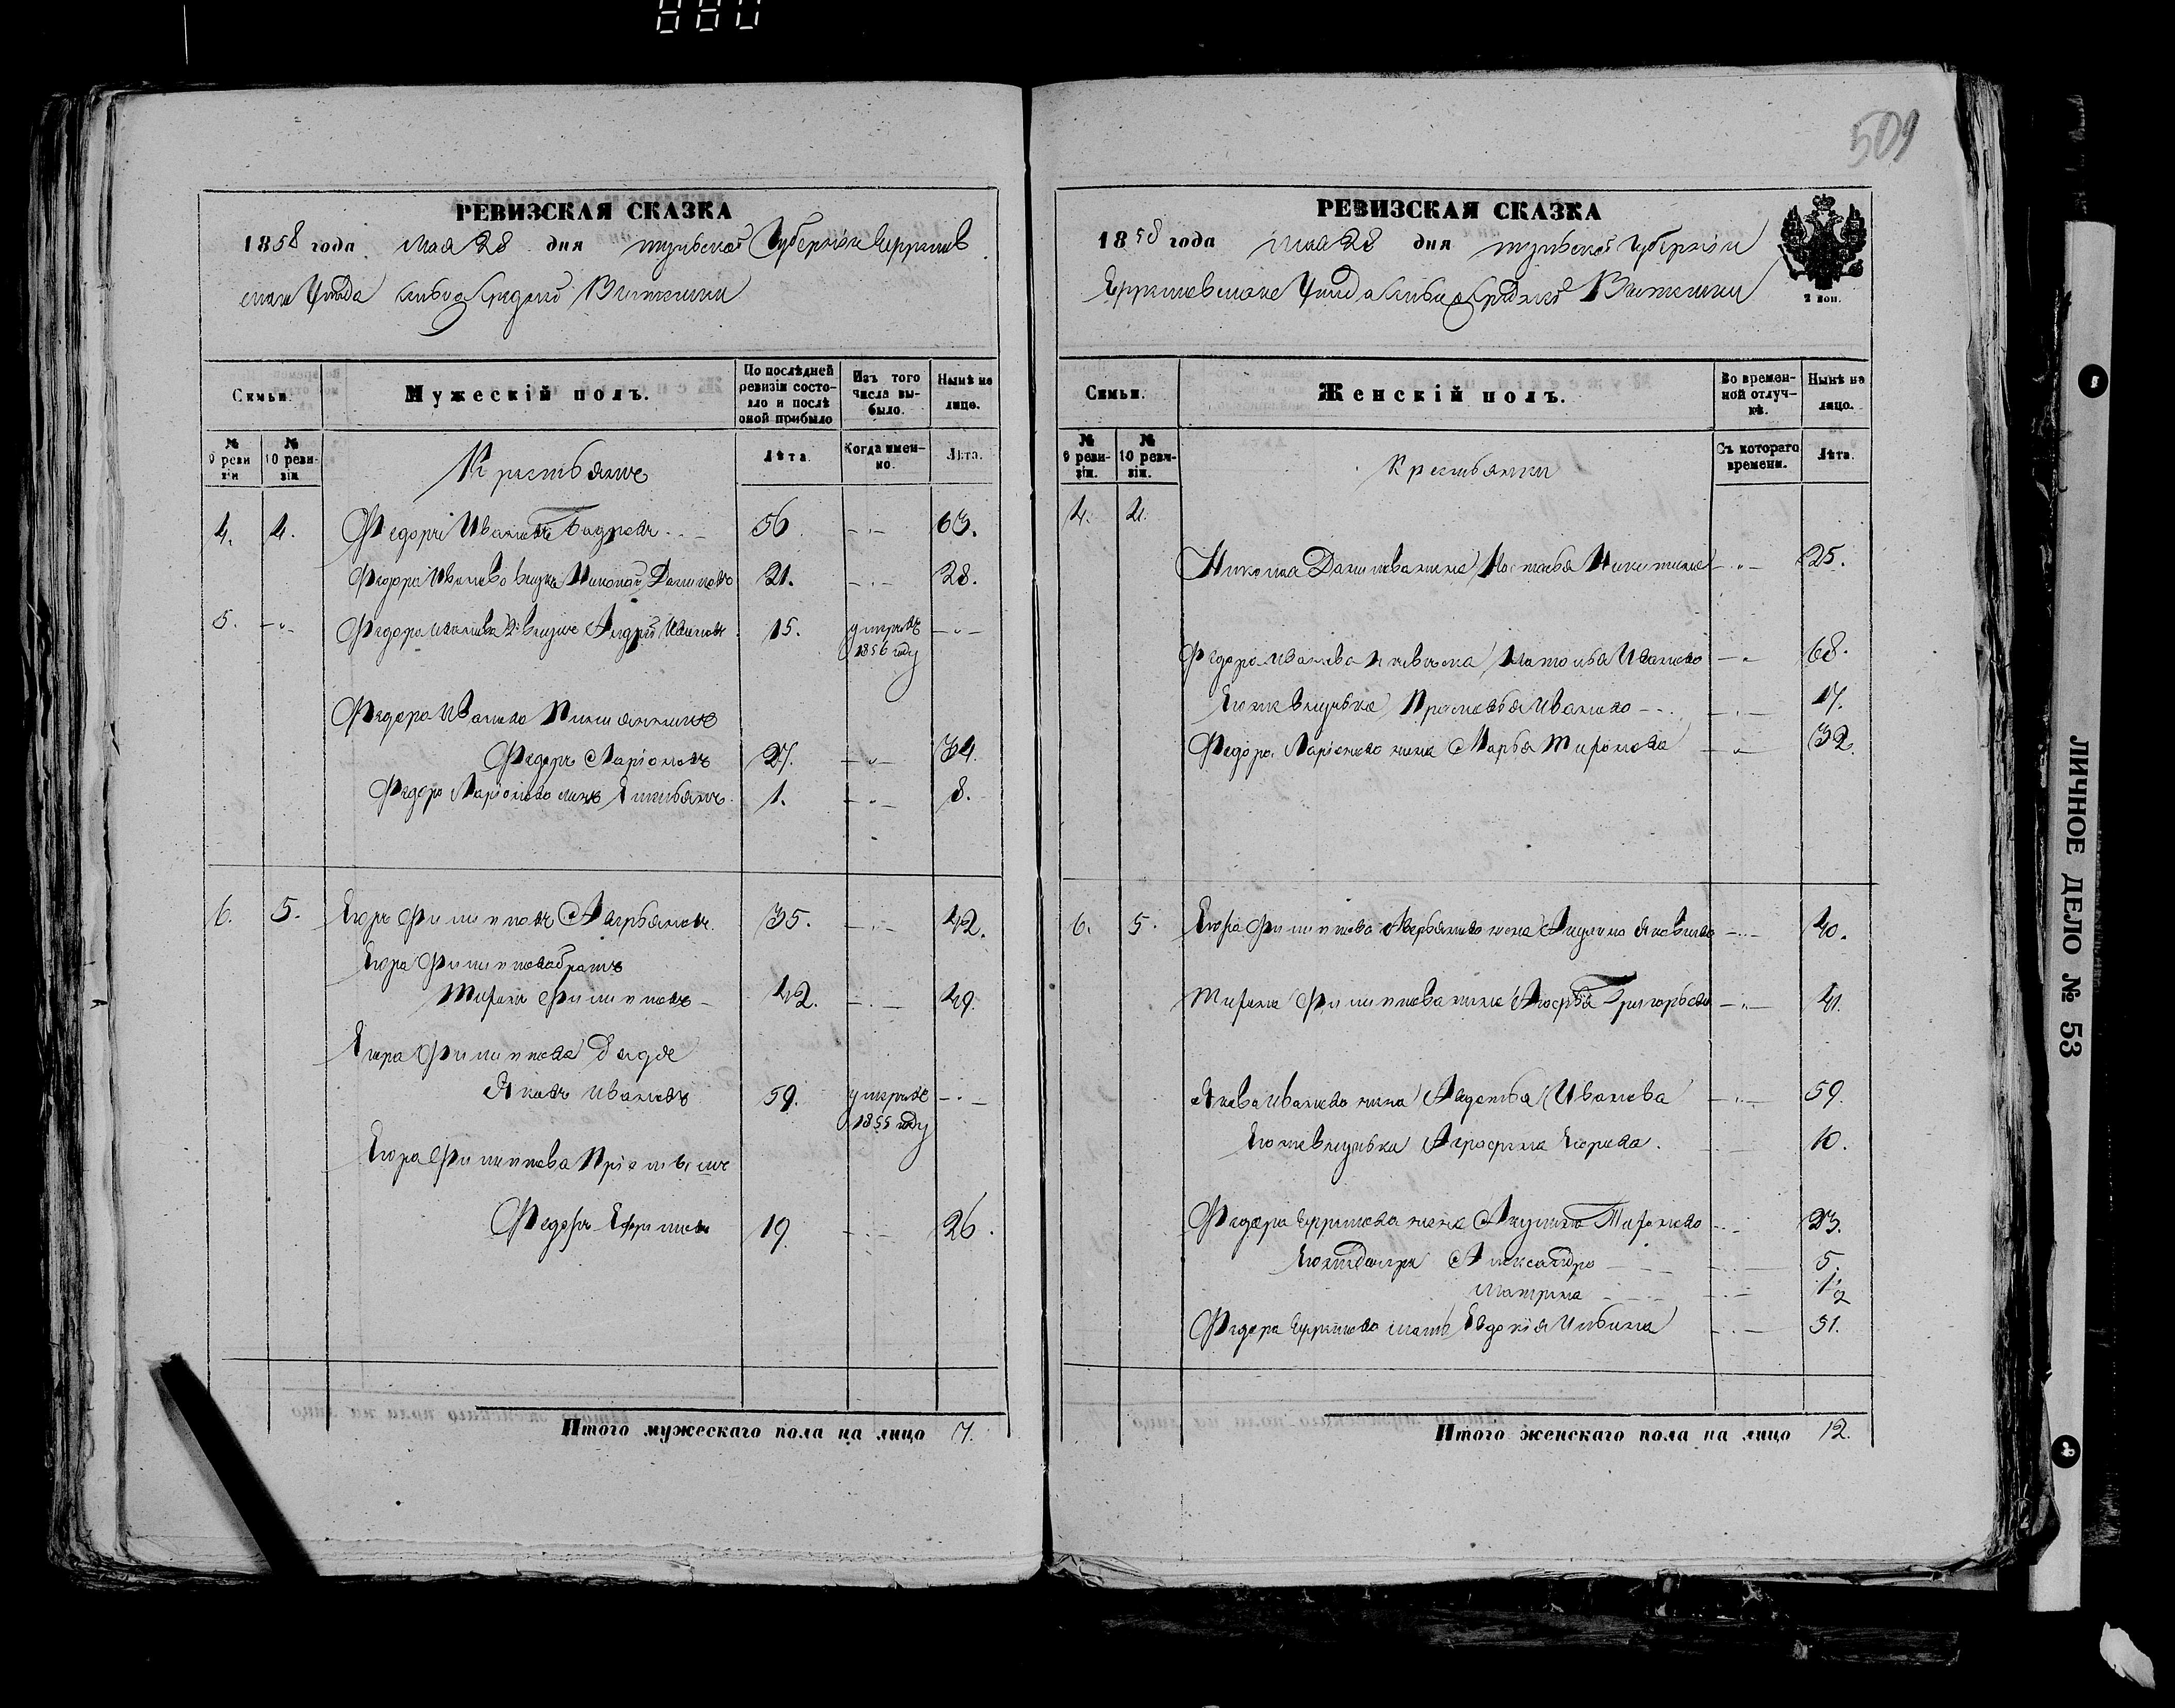 509
РЕВИЗСКАЯ СКАЗКА
1858 года мая 28 дня тульской Губернии Ефремов
скаго Уезда сельца Средней Вытемки
Семьи.
Мужескій полъ.
По послѣдней ревизіи состояло и послѣ оной прибыло
Изъ того числа выбыло.
Нынѣ на лицо.
№ 9 ревизіи
№ 10 ревизіи
Крестьяне
Лѣта.
Когда именно.
Лѣта.
4. 4. Федоръ Ивановъ 56 63.
Федора Иванова внукъ Николай Даниловъ 21. 28.
5. Федора Иванова 2й внукъ Андрей Ивановъ 15. умеръ въ 1856 году
Федора Иванова
Федоръ Ларіоновъ 27. 34.
Федора Ларіонова сынъ Емельянъ 1. 8.
6. 5. Егоръ Филиповъ Аверьяновъ 35. 42.
Егора Филипова братъ
Миронъ Филиповъ 42. 49.
Егора Филипова дядя
Яковъ Ивановъ 59. умеръ въ 1855 году
Егора Филипова Пріемышъ
Федоръ Ефремовъ 19. 26.
Итого мужескаго пола на лицо 7.
РЕВИЗСКАЯ СКАЗКА
1858 года мая 28 дня тульской Губернии
Ефремовскаго Уезда сельца Средней Вытемки
2 коп.
Семьи.
Женскій полъ.
Во временной отлучкѣ.
Нынѣ на лицо.
№ 9 ревизіи.
№ 10 ревизіи.
Крестьянки
Съ котораго времени.
Лѣта.
4. 4.
Николая Данилова жена Настасья Никитина 25.
Федора Иванова невестка Наталья Иванова 68.
Ея же внучька Прасковья Иванова 17.
Федора Ларіонова жена Марья Миронова 32.
6. 5. Егора Филипова Аверьянова жена Акулина Яковлева 40.
Мирона Филипова жена Григорьева 41.
Якова Иванова жена Авдотья Иванова 59.
Ея же внучька Аграфена Егорова 10.
Федора Ефремова жена Акулина Миронова 23.
Его же дочери Александра 5.
Матрена 1/2
Федора Ефремова мать Евдокія Ильина 51.
Итого женскаго пола на лицо 12.
ЛИЧНОЕ ДЕЛО № 53